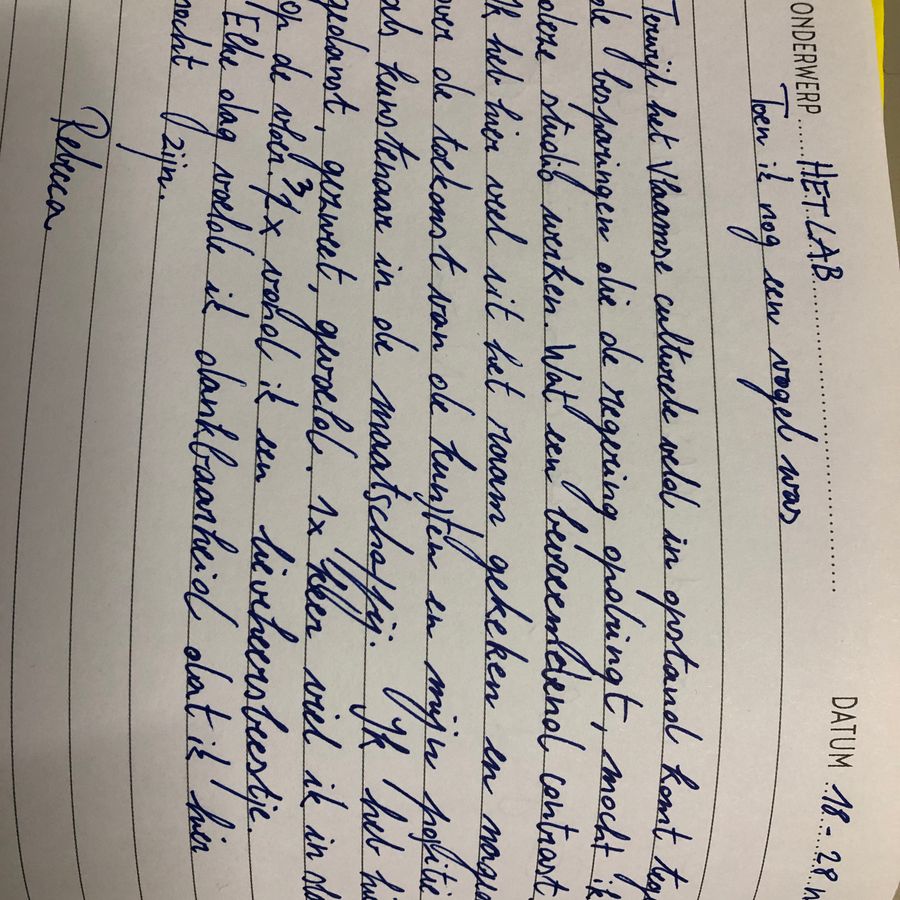 ONDERWERP HET L.A.B. DATUM 18 - 28 n
Toen ik nog een vogel was
Terwijl het Vlaamse culturele veld in opstand komt tege
de besparingen die de regering opdringt, mocht ik
deze studio werken. Wat een bevreemdend contrast.
Ik heb hier veel uit het raam gekeken en nage
over de toekomst van de kunsten en mijn positie
als kunstenaar in de maatschappij. Ik heb hie
gedanst, gezweet, gevoeld. 1x viel ik in sla
op de vloer. 3x vond ik een lieveheersbeestje.
Elke dag voelde ik dankbaarheid dat ik hier
mocht zijn.
Rebecca